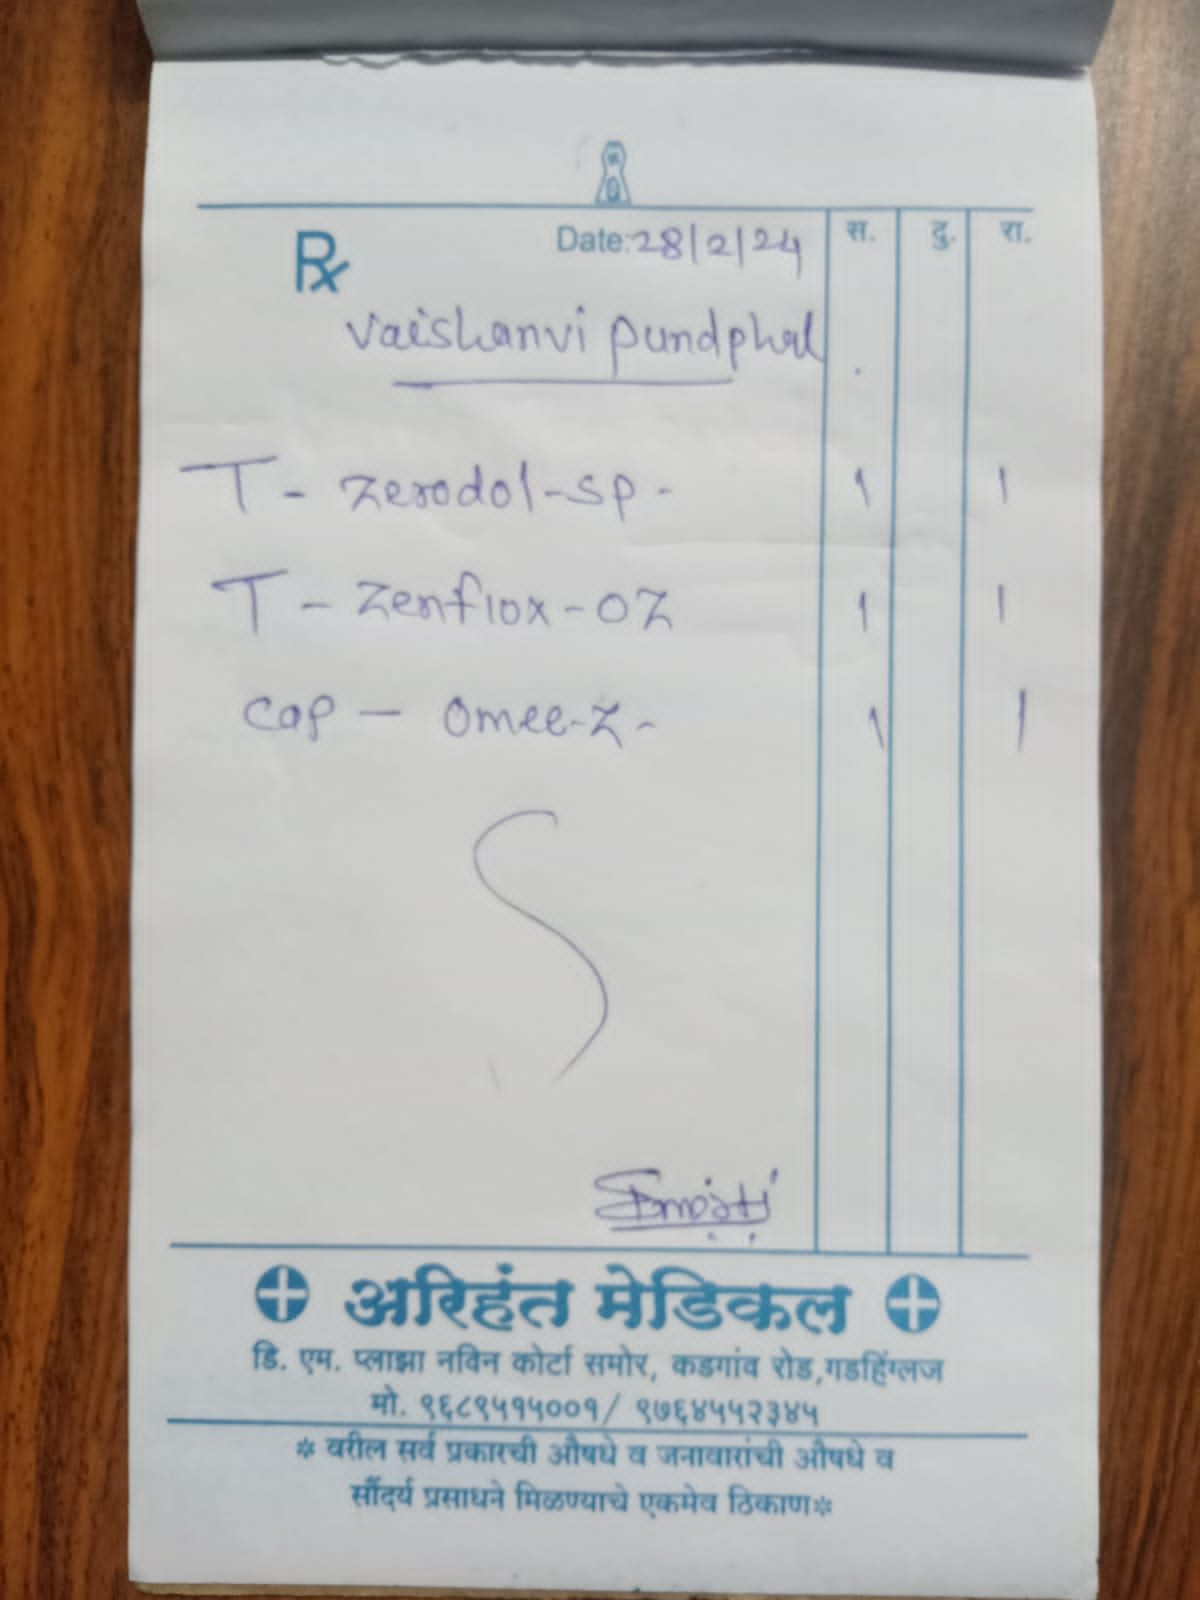 Rx Date:28/2/24 स. दु. रा.
Vaishanvi Pundphal
T - Zerodol-SP - 1 1
T - Zenflox-OZ 1 1
Cap - Omee-Z - 1 1
अरिहंत मेडिकल
डि. एम. प्लाझा नविन कोर्टा समोर, कडगांव रोड,गडहिंग्लज
मो. ९६८९५१५००१/ ९७६४५५२३४५
* वरील सर्व प्रकारची औषधे व जनावारांची औषधे व
सौंदर्य प्रसाधने मिळण्याचे एकमेव ठिकाण*